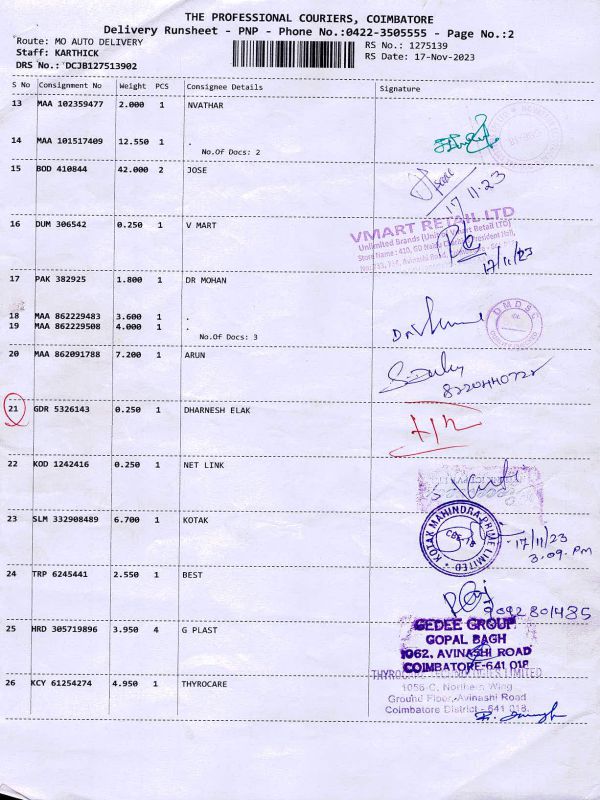 THE PROFESSIONAL COURIERS, COIMBATORE
Delivery Runsheet - PNP - Phone No.:0422-3505555 - Page No.:2
Route: MO AUTO DELIVERY
RS No.: 1275139
Staff: KARTHICK
RS Date: 17-Nov-2023
DRS No.: DCJB127513902
S No Consignment No Weight PCS Consignee Details Signature
13 MAA 102359477 2.000 1 NVATHAR
14 MAA 101517409 12.550 1 .
No.Of Docs: 2
15 BOD 410844 42.000 2 JOSE
17 11-23
16 DUM 306542 0.250 1 V MART
VMART RETAIL LTD
Unlimited Brands (Unit of Vmart Retail LTD)
17/11/23
17 PAK 382925 1.800 1 DR MOHAN
18 MAA 862229483 3.600 1 .
19 MAA 862229508 4.000 1 .
No.Of Docs: 3
DMDSC
20 MAA 862091788 7.200 1 ARUN
21 GDR 5326143 0.250 1 DHARNESH ELAK
22 KOD 1242416 0.250 1 NET LINK
23 SLM 332908489 6.700 1 KOTAK
KOTAK MAHINDRA PRIME LIMITED
17/11/23
3.09.PM
24 TRP 6245441 2.550 1 BEST
7092801485
25 HRD 305719896 3.950 4 G PLAST
GEDEE GROUP
GOPAL BAGH
1062, AVINASHI ROAD
COIMBATORE-641 018
26 KCY 61254274 4.950 1 THYROCARE
THYROCARE TECHNOLOGIES LIMITED
1056-C, Northern Wing
Ground Floor, Avinashi Road
Coimbatore District - 641 018.